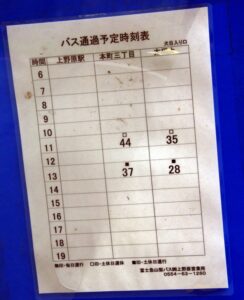 バス通過予定時刻表
犬目入り口
時間 上野原駅 本町三丁目
6
7
8
9
10 □44 □35
11
12
13 ■37 ■28
14
15
16
17
18
19
■印・毎日運行 □印・土休日運休
富士急山梨バス㈱上野原営業所
0554-63-1260